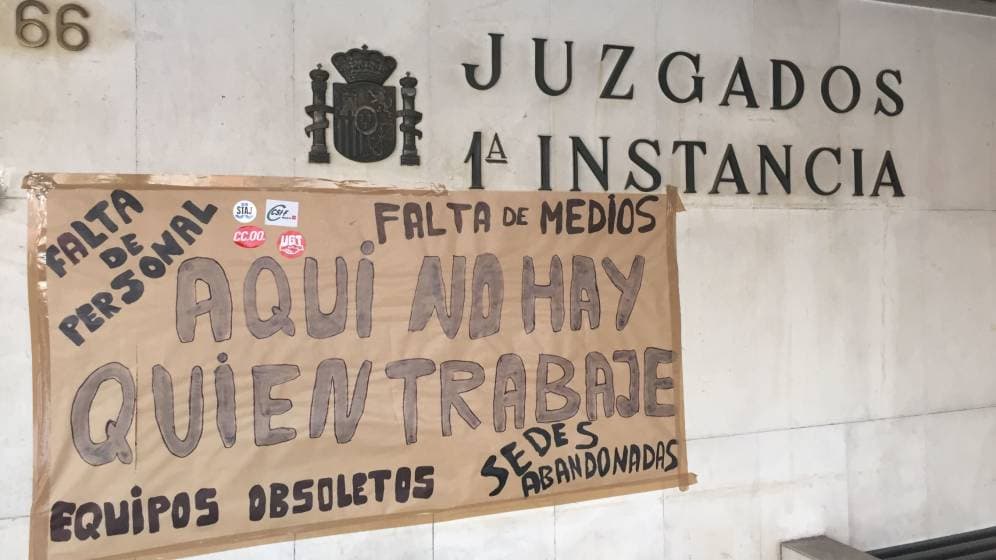 66
JUZGADOS
1ª INSTANCIA
FALTA
DE
PERSONAL
STAJ
CSIF
CC.OO.
UGT
FALTA DE MEDIOS
AQUI NO HAY
QUIEN TRABAJE
SEDES
ABANDONADAS
EQUIPOS OBSOLETOS